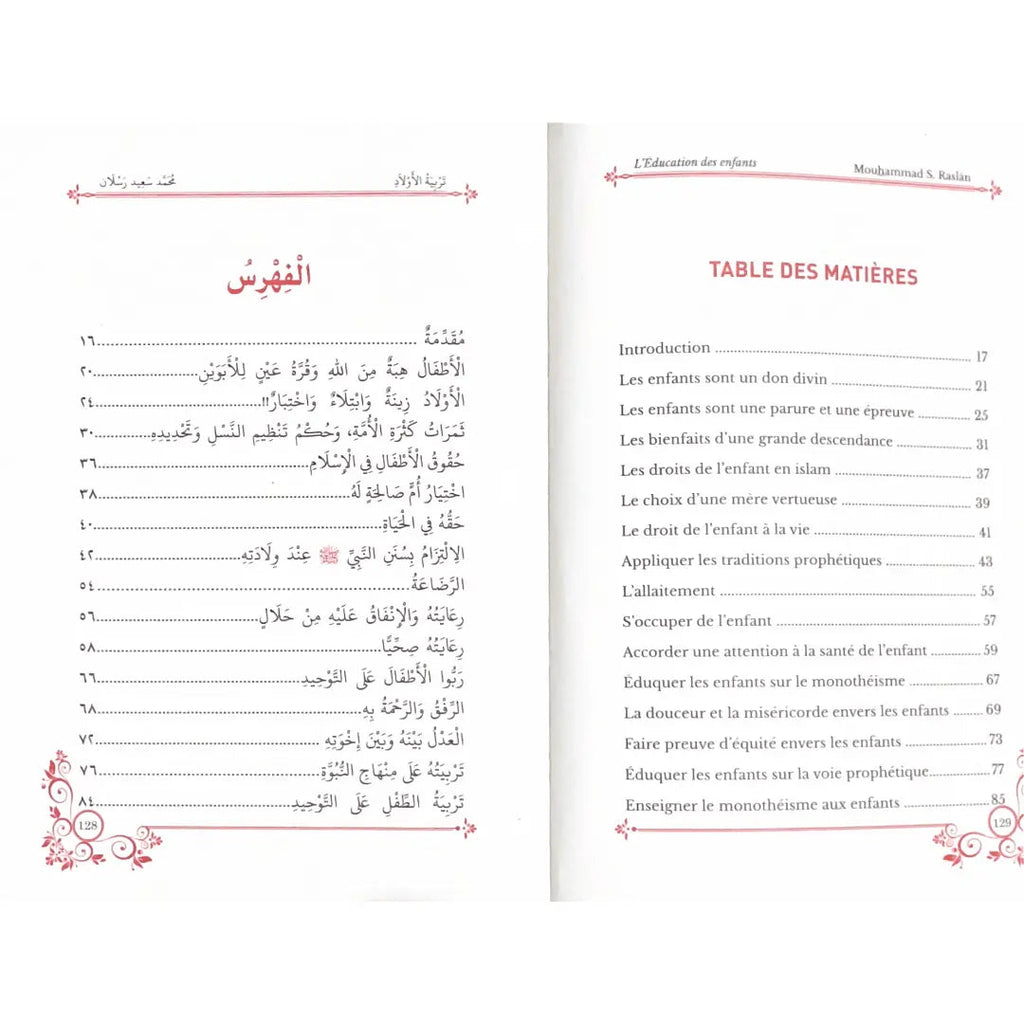 تَرْبِيَةُ الأَوْلَادِ
مُحَمَّد سَعِيد رَسْلَان
الْفِهْرِسُ
مُقَدِّمَةٌ ..........................................................١٦
الْأَطْفَالُ هِبَةٌ مِنَ اللهِ وَقُرَّةُ عَيْنٍ لِلْأَبَوَيْنِ....................٢٠
الْأَوْلَادُ زِينَةٌ وَابْتِلَاءٌ وَاخْتِبَارٌ!!................................٢٤
ثَمَرَاتُ كَثْرَةِ الْأُمَّةِ، وَحُكْمُ تَنْظِيمِ النَّسْلِ وَتَحْدِيدِهِ............٣٠
حُقُوقُ الْأَطْفَالِ فِي الْإِسْلَامِ........................................٣٦
اخْتِيَارُ أُمٍّ صَالِحَةٍ لَهُ................................................٣٨
حَقُّهُ فِي الْحَيَاةِ......................................................٤٠
الِالْتِزَامُ بِسُنَنِ النَّبِيِّ ﷺ عِنْدَ وِلَادَتِهِ............................٤٢
الرَّضَاعَةُ............................................................٥٤
رِعَايَتُهُ وَالْإِنْفَاقُ عَلَيْهِ مِنْ حَلَالٍ................................٥٦
رِعَايَتُهُ صِحِّيًّا......................................................٥٨
رَبُّوا الْأَطْفَالَ عَلَى التَّوْحِيدِ......................................٦٦
الرِّفْقُ وَالرَّحْمَةُ بِهِ..................................................٦٨
الْعَدْلُ بَيْنَهُ وَبَيْنَ إِخْوَتِهِ ........................................٧٢
تَرْبِيَتُهُ عَلَى مِنْهَاجِ النُّبُوَّةِ........................................٧٦
تَرْبِيَةُ الطِّفْلِ عَلَى التَّوْحِيدِ......................................٨٤
128
L'Éducation des enfants
Mouhammad S. Raslān
TABLE DES MATIÈRES
Introduction .......................................................... 17
Les enfants sont un don divin ................................ 21
Les enfants sont une parure et une épreuve ............ 25
Les bienfaits d'une grande descendance .................. 31
Les droits de l'enfant en islam ................................ 37
Le choix d'une mère vertueuse ................................ 39
Le droit de l'enfant à la vie ...................................... 41
Appliquer les traditions prophétiques ...................... 43
L'allaitement .......................................................... 55
S'occuper de l'enfant .............................................. 57
Accorder une attention à la santé de l'enfant ............ 59
Éduquer les enfants sur le monothéisme .................. 67
La douceur et la miséricorde envers les enfants ........ 69
Faire preuve d'équité envers les enfants .................. 73
Éduquer les enfants sur la voie prophétique.............. 77
Enseigner le monothéisme aux enfants .................... 85
129